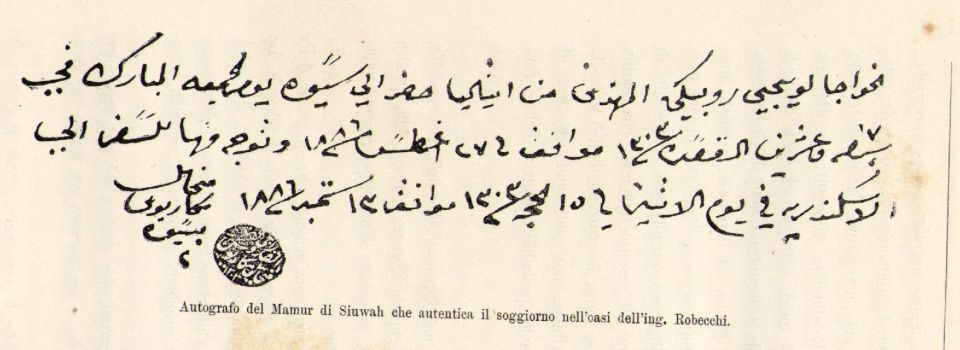 الخواجا لويجي روبيكي المهندس من ايتاليا حضر الي سيوه يوم الجمعه المبارك في
وعشرين القعده ١٣٠٣ موافق ٢٧ اغسطس ١٨٨٦ وتوجه منها للسفر الي
الاسكندريه في يوم الاثنين ١٥ الحجه ١٣٠٣ موافق ١٣ ستمبر ١٨٨٦
بسيوه
Autografo del Mamur di Siuwah che autentica il soggiorno nell'oasi dell'ing. Robecchi.